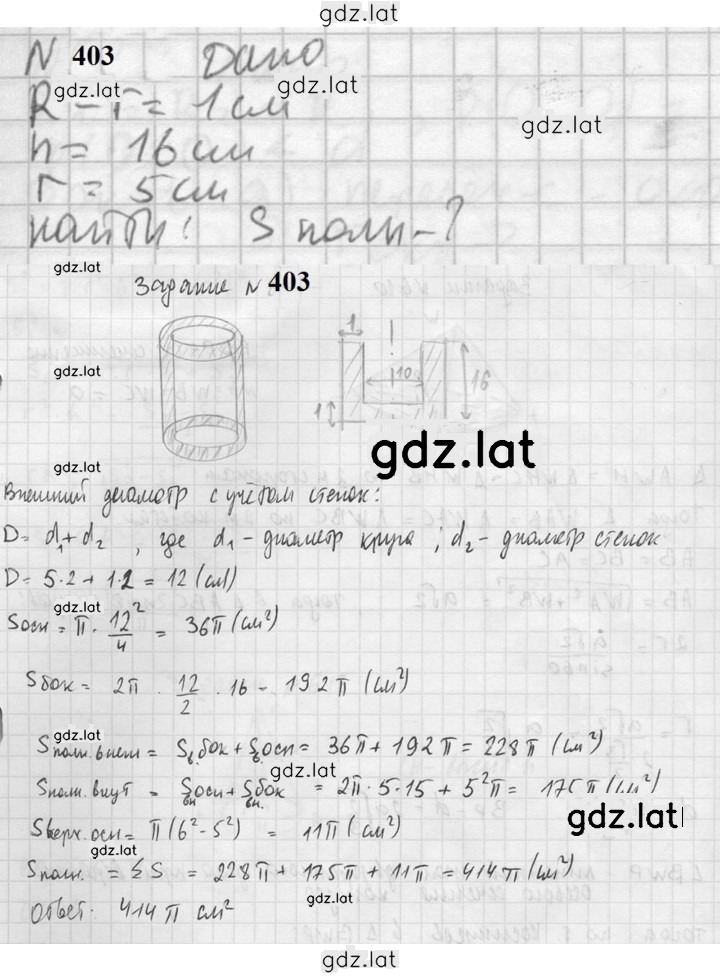 gdz.lat
N 403 Дано
gdz.lat
gdz.lat
R - r = 1 см
gdz.lat
h = 16 см
r = 5 см
найти: S полн - ?
gdz.lat
Задание N 403
1 10 16 1
gdz.lat
gdz.lat
gdz.lat
Внешний диаметр с учётом стенок:
D = d₁ + d₂ , где d₁ - диаметр круга ; d₂ - диаметр стенок
D = 5·2 + 1·2 = 12 (см)
gdz.lat
Sосн = π · 12²/4 = 36π (см²)
Sбок = 2π · 12/2 · 16 = 192π (см²)
gdz.lat
Sполн.внеш = Sв.бок + Sв.осн = 36π + 192π = 228π (см²)
gdz.lat
Sполн.внут = Sвн.осн + Sвн.бок = 2π·5·15 + 5²π = 175π (см²)
gdz.lat
Sверх.осн = π (6² - 5²) = 11π (см²)
gdz.lat
Sполн. = ΣS = 228π + 175π + 11π = 414π (см²)
gdz.lat
Ответ. 414π см²
gdz.lat